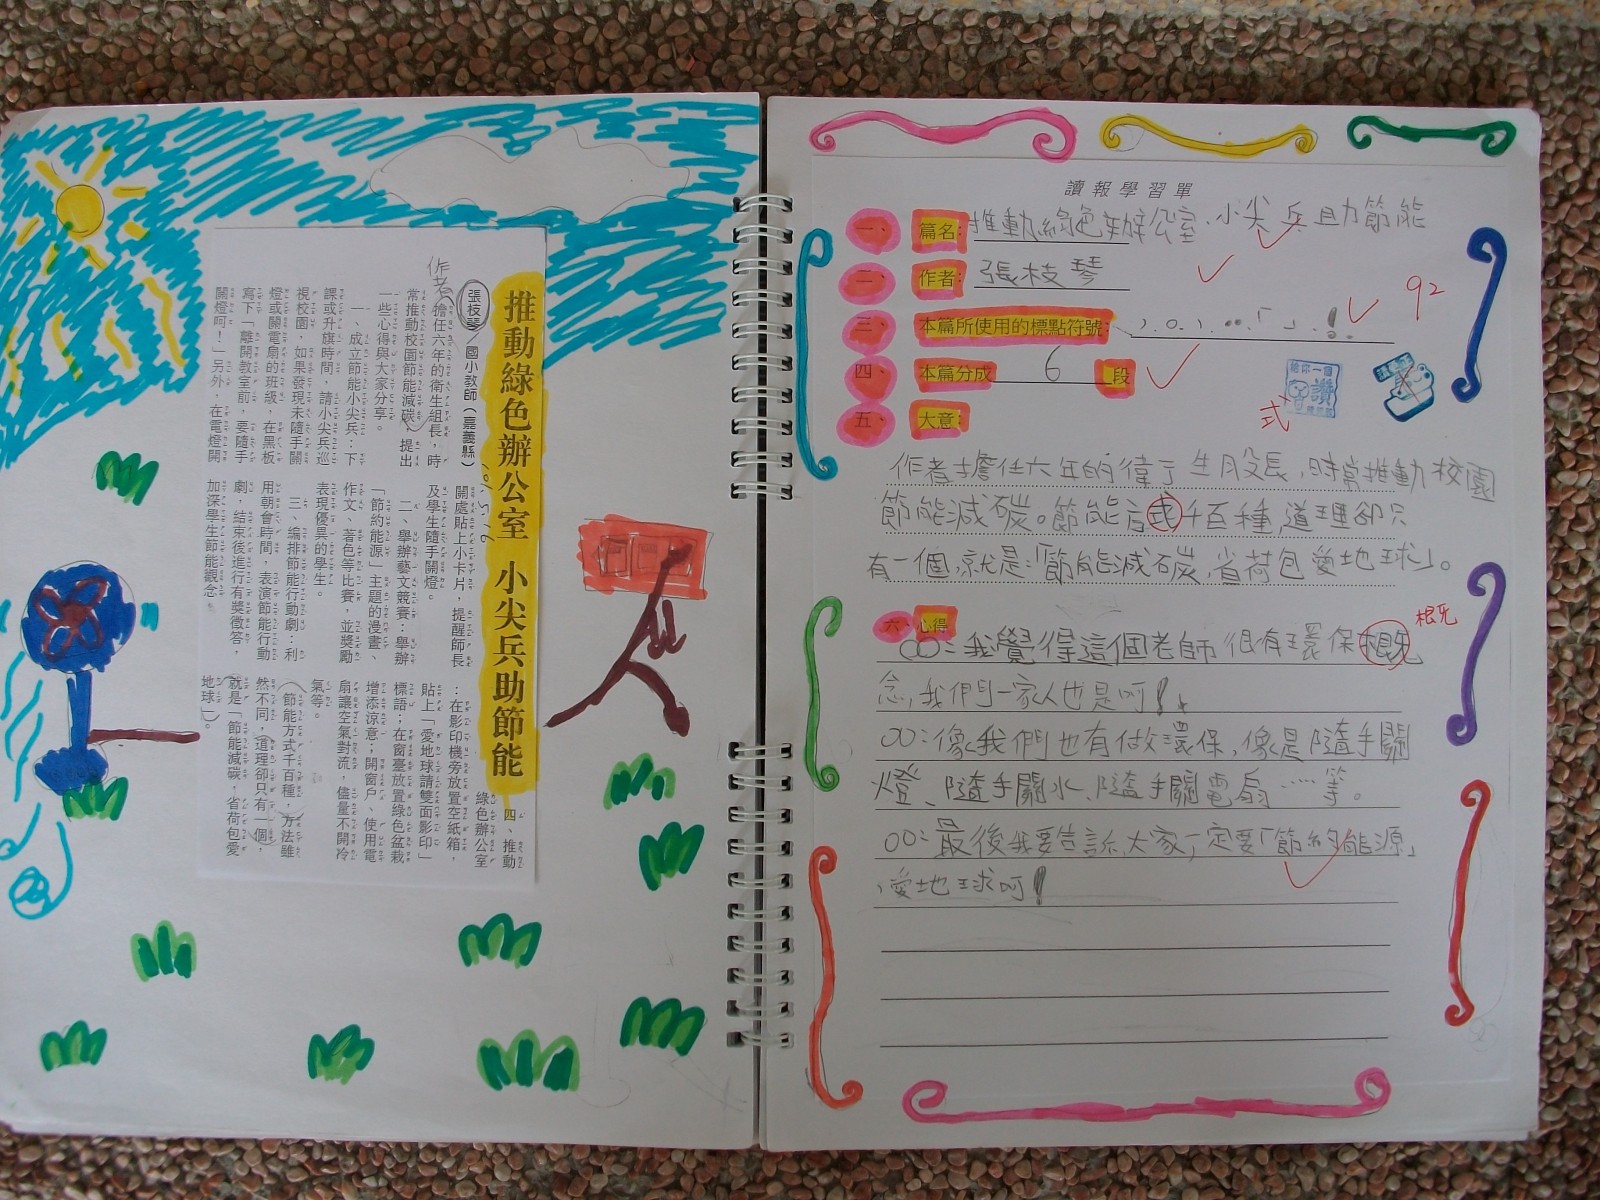 推動綠色辦公室 小尖兵助節能
作者
張枝琴／國小教師（嘉義縣）
擔任六年的衛生組長，時
常推動校園節能減碳，提出
一些心得與大家分享。
一、成立節能小尖兵：下
課或升旗時間，請小尖兵巡
視校園，如果發現未隨手關
燈或關電扇的班級，在黑板
寫下「離開教室前，要隨手
關燈呵！」另外，在電燈開
關處貼上小卡片，提醒師長
及學生隨手關燈。
二、舉辦藝文競賽：舉辦
「節約能源」主題的漫畫、
作文、著色等比賽，並獎勵
表現優異的學生。
三、編排節能行動劇：利
用朝會時間，表演節能行動
劇，結束後進行有獎徵答，
加深學生節能觀念。
四、推動
綠色辦公室
：在影印機旁放置空紙箱，
貼上「愛地球請雙面影印」
標語；在窗臺放置綠色盆栽
增添涼意；開窗戶、使用電
扇讓空氣對流，儘量不開冷
氣等。
節能方式千百種，方法雖
然不同，道理卻只有一個，
就是「節能減碳，省荷包愛
地球」。
讀報學習單
一、篇名：推動綠色辦公室、小尖兵助節能
二、作者：張枝琴
三、本篇所使用的標點符號：
92
四、本篇分成 6 段
給你一個讚
式
五、大意：
作者擔任六年的衛生組長，時常推動校園
節能減碳。節能方式千百種道理卻只
有一個，就是：「節能減碳，省荷包愛地球」。
六、心得
根死
OO：我覺得這個老師很有環保根死
念，我們一家人也是呵！
OO：像我們也有做環保，像是隨手關
燈、隨手關水、隨手關電扇……等。
OO：最後我要告訴大家，一定要「節約能源」
，愛地球呵！